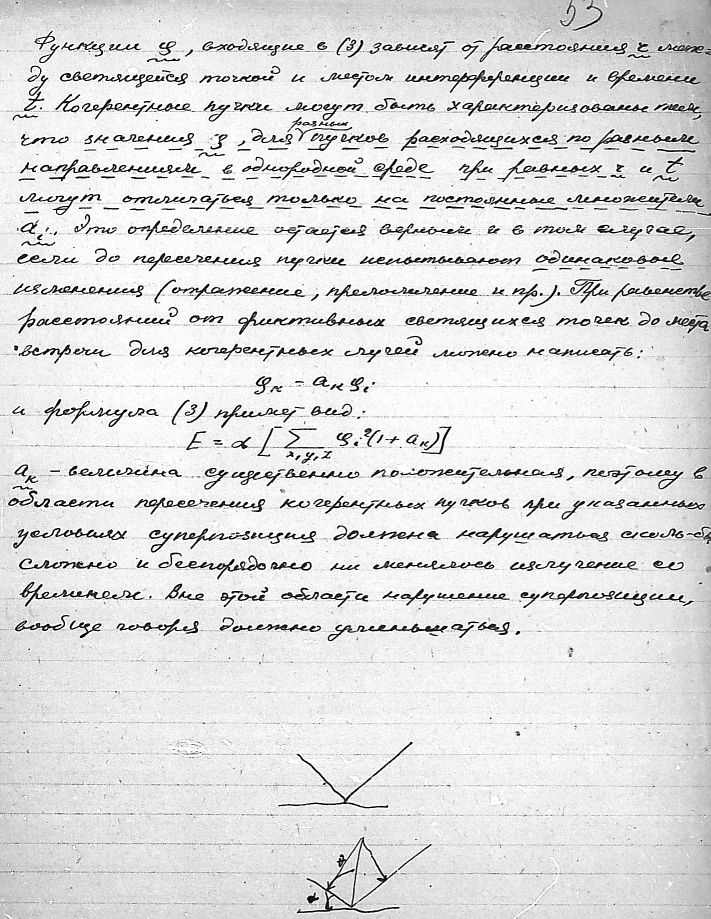 53
Функции φ, входящие в (3) зависят от расстояния r меж-
ду светящейся точкой и местом интерференции и времени
t. Когерентные пучки могут быть характеризованы тем,
что значения φ, для разных пучков расходящихся по разным
направлениям в однородной среде при равных r и t
могут отличаться только на постоянные множители
ai. Это определение остается верным и в том случае,
если до пересечения пучки испытывают одинаковые
изменения (отражение, преломление и пр.). При равенстве
расстояний от фиктивных светящихся точек до места
встречи для когерентных лучей можно написать:
φк = aкφi
и формула (3) примет вид:
E = α [ ∑x,y,z φi²(1 + aк)]
aк – величина существенно положительная, поэтому в
области пересечения когерентных пучков при указанных
условиях суперпозиция должна нарушаться сколь-бы
сложно и беспорядочно ни менялось излучение со
временем. Вне этой области нарушение суперпозиции,
вообще говоря должно уменьшаться.